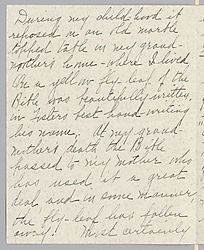 During my childhood it
reposed on an old marble
topped table in my grand-
mother's home - where I lived
On a yellow fly leaf of the
Bible was beautifully written,
in Sisters best hand-writing
his name,. At my grand-
mother's death, the Bible
passed to my mother who
has used it a great
deal and in some manner,
the fly-leaf has fallen
away! Most certainly